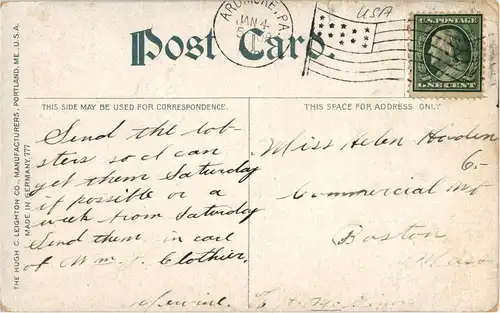 ARDMORE, PA.
JAN 4
USA
U.S. POSTAGE
ONE CENT
Post Card.
THIS SIDE MAY BE USED FOR CORRESPONDENCE.
THIS SPACE FOR ADDRESS ONLY
THE HUGH C. LEIGHTON CO., MANUFACTURERS, PORTLAND, ME., U.S.A.
MADE IN GERMANY. 777
Send the lob-
sters so I can
get them Saturday
if possible or a
week from Saturday
Send them in care
of Wm. J. Clothier,
Miss Helen
6-
Commercial
Boston
Mass